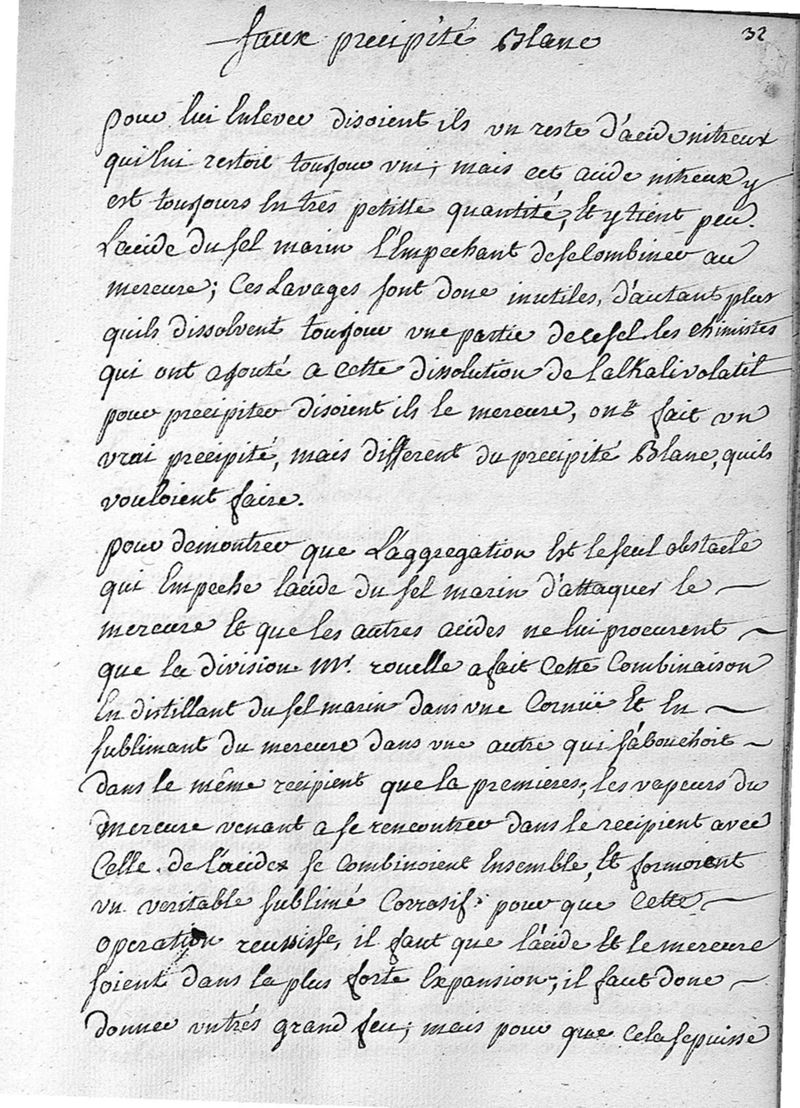 faux precipité Blanc
32
pour lui Enlever disoient ils un reste d'acide nitreux
qui lui restoit toujour uni; mais cet acide nitreux y
est toujours En trés petitte quantité, Et y tient peu.
L'acide du sel marin l'Empechant de se Combiner au
mercure; Ces Lavages sont donc inutiles, d'autant plus
quils dissolvent toujour une partie de ce sel. les chimistes
qui ont ajouté a cette dissolution de l'alkali volatil
pour precipiter disoient ils le mercure, ont fait un
vrai precipité, mais different du precipité Blanc, quils
vouloient faire.
pour demontrer que L'aggregation Est le seul obstacle
qui Empeche lacide du sel marin d'attaquer le
mercure Et que les autres acides ne lui procurent
que la division. Mr. rouelle a fait Cette Combinaison
En distillant du sel marin dans une Cornuë Et En
sublimant du mercure dans une autre qui s'abouchoit
dans le même recipient que la premieres; les vapeurs du
mercure venant a se rencontrer dans le recipient avec
Celle de l'acide se combinoient Ensemble, Et formoient
un veritable sublimé Corrosif. pour que Cette
operation reussisse, il faut que l'acide Et le mercure
soient dans la plus forte Expansion; il faut donc
donner un trés grand feu; mais pour que cela se puisse